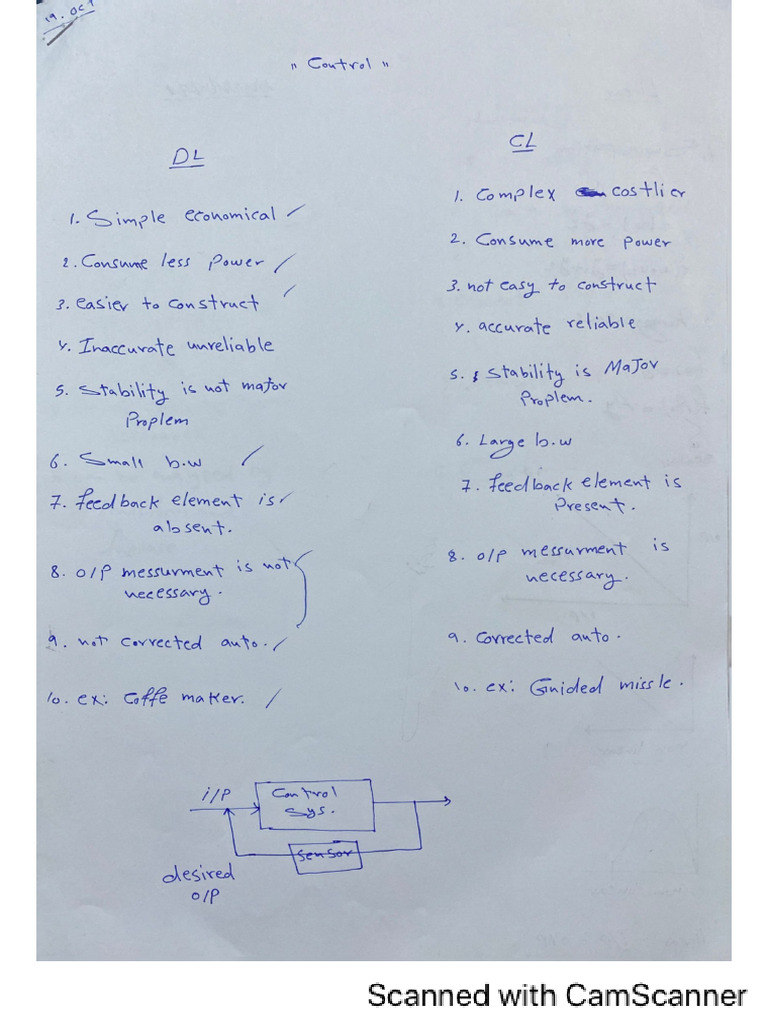 19. Oct
"Control"
DL
1. Simple economical
2. Consume less power
3. easier to construct
4. Inaccurate unreliable
5. Stability is not major
Proplem
6. Small b.w
7. feedback element is
absent.
8. o/p messurment is not
necessary.
9. not corrected auto.
10. ex: Coffe maker.
CL
1. Complex costlier
2. Consume more power
3. not easy to construct
4. accurate reliable
5. Stability is Major
Proplem.
6. Large b.w
7. feedback element is
Present.
8. o/p messurment is
necessary.
9. Corrected auto.
10. ex: Guided missle.
i/P
Control
Sys.
sensor
desired
o/P
Scanned with CamScanner